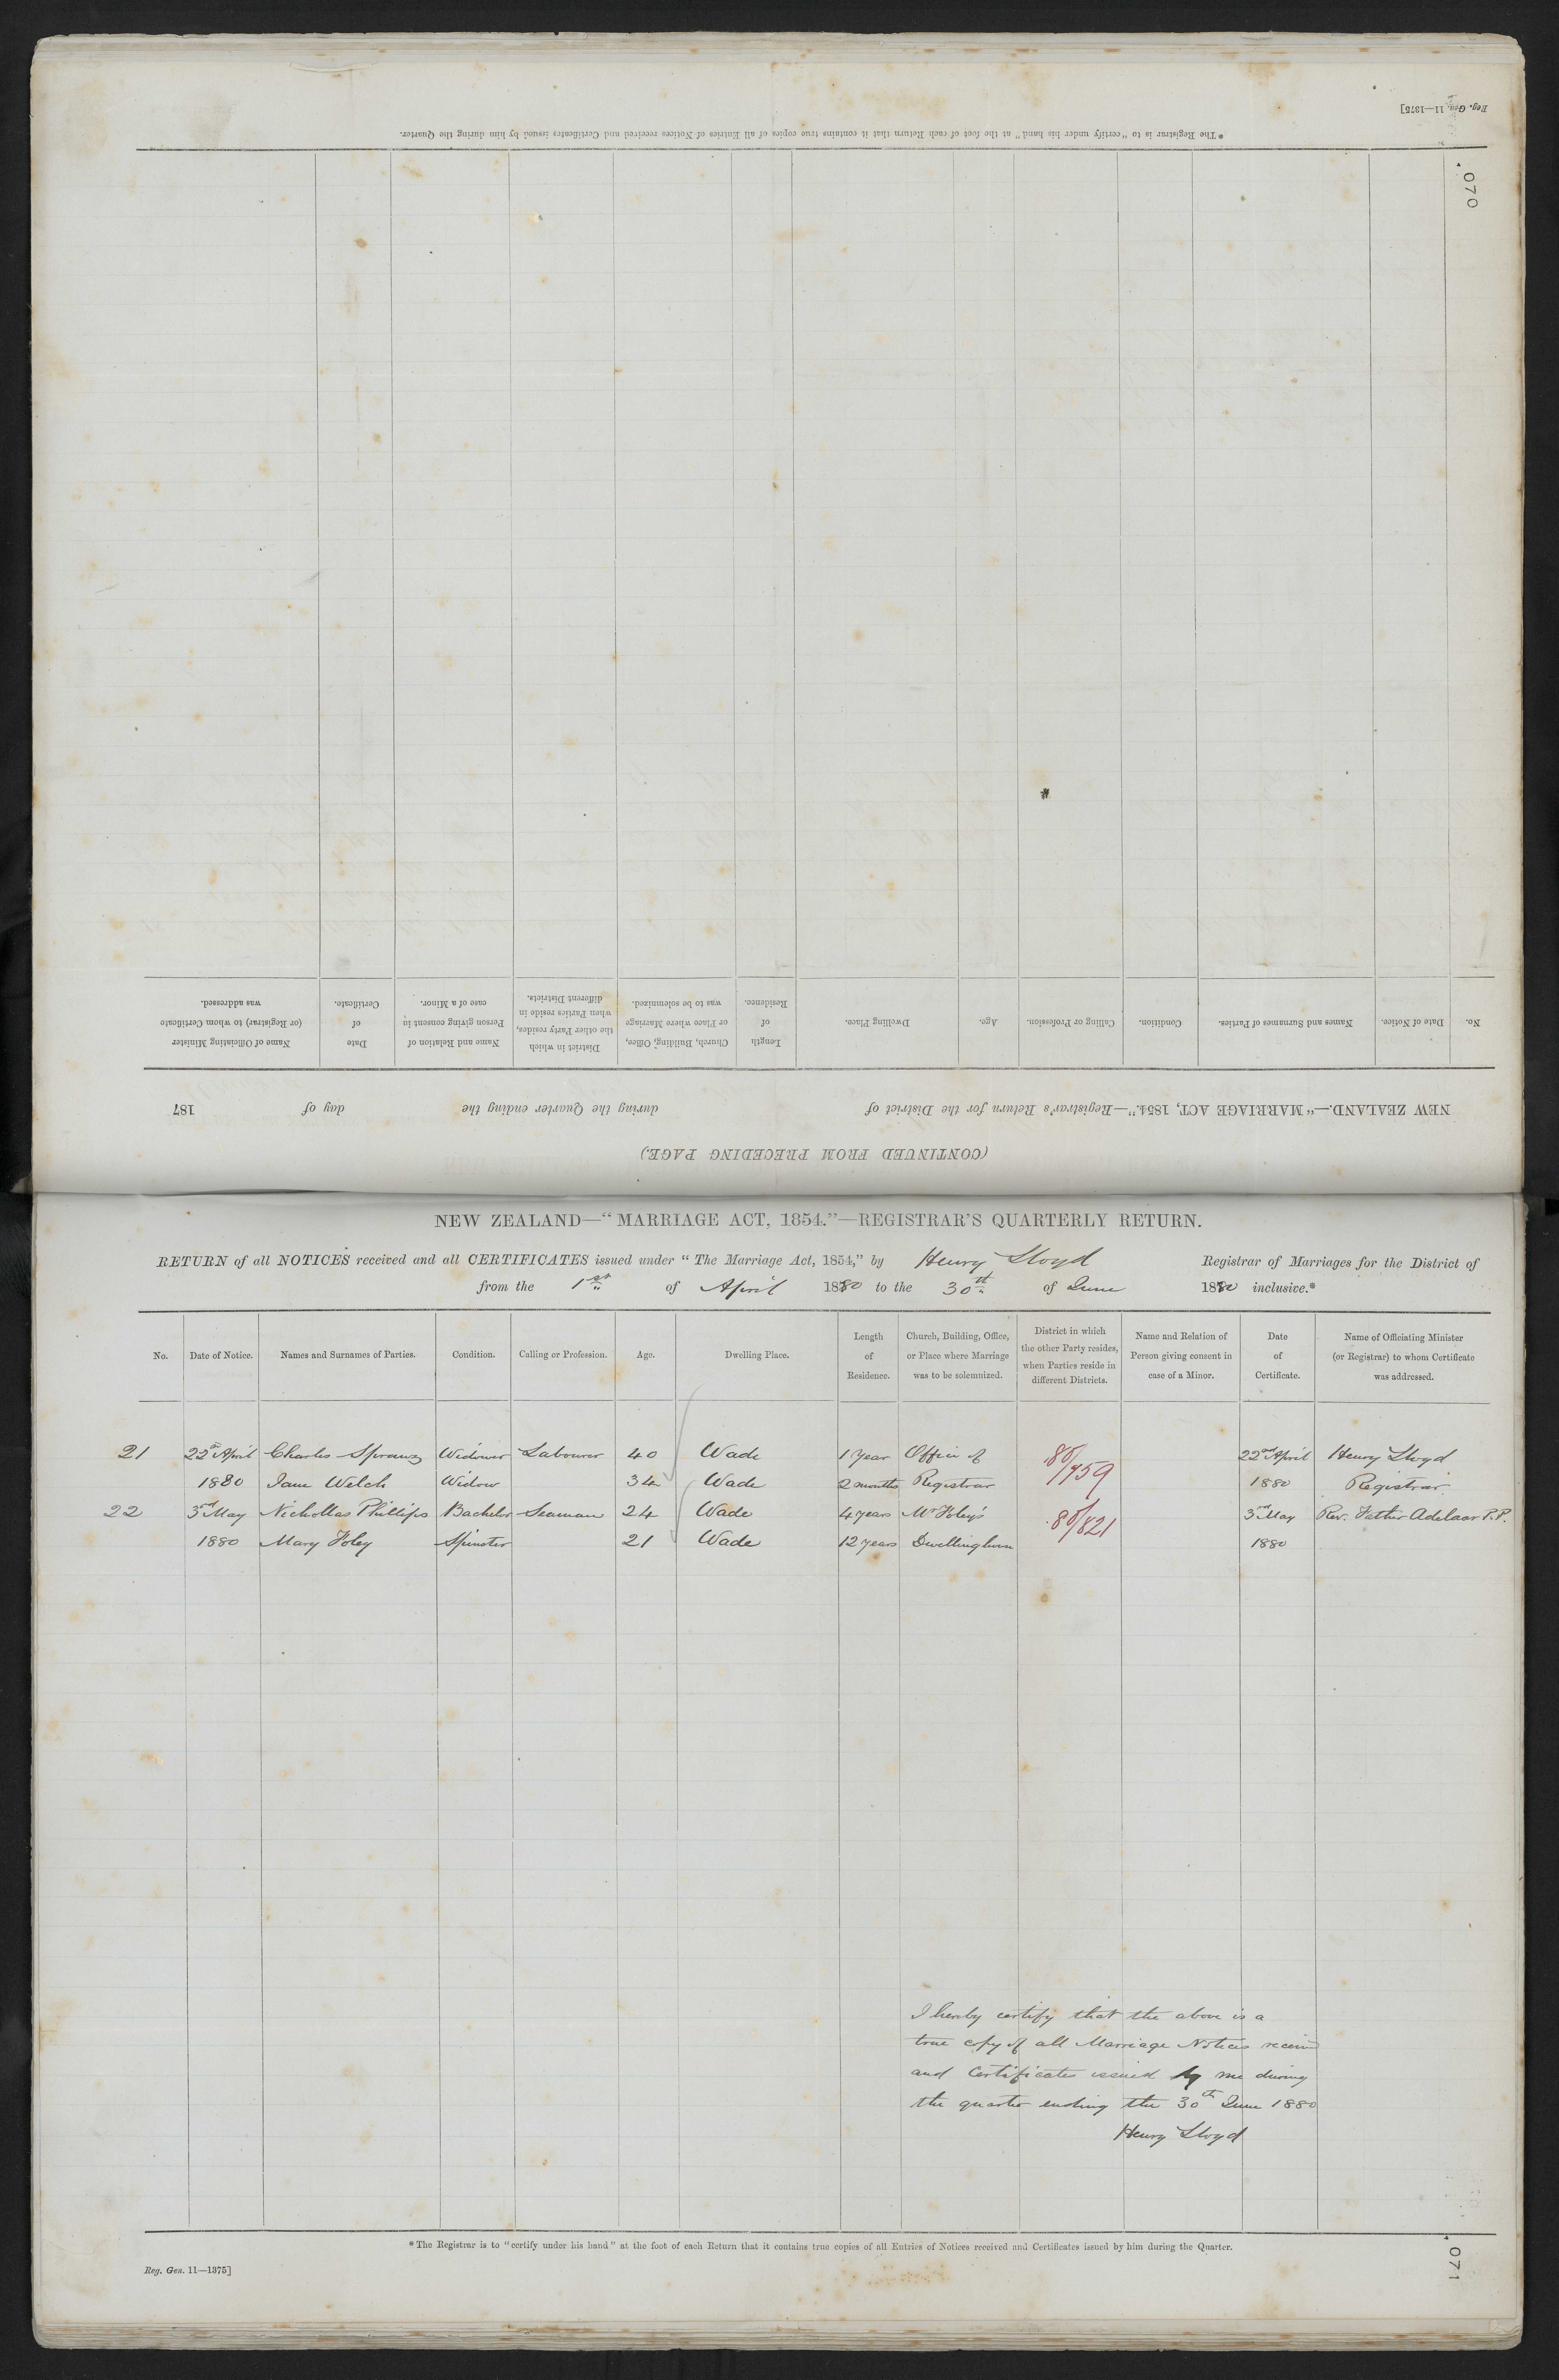 Reg. Gen. 11—1375]
*The Registrar is to "certify under his hand" at the foot of each Return that it contains true copies of all Entries of Notices received and Certificates issued by him during the Quarter.
070
(CONTINUED FROM PRECEDING PAGE.)
NEW ZEALAND.—"MARRIAGE ACT, 1854."—Registrar's Return for the District of during the Quarter ending the day of 187
No. Date of Notice. Names and Surnames of Parties. Condition. Calling or Profession. Age. Dwelling Place. Length of Residence. Church, Building, Office, or Place where Marriage was to be solemnized. District in which the other Party resides, when Parties reside in different Districts. Name and Relation of Person giving consent in case of a Minor. Date of Certificate. Name of Officiating Minister (or Registrar) to whom Certificate was addressed.
NEW ZEALAND—"MARRIAGE ACT, 1854."—REGISTRAR'S QUARTERLY RETURN.
RETURN of all NOTICES received and all CERTIFICATES issued under "The Marriage Act, 1854," by Henry Lloyd Registrar of Marriages for the District of
from the 1st of April 1880 to the 30th of June 1880 inclusive.*
No. Date of Notice. Names and Surnames of Parties. Condition. Calling or Profession. Age. Dwelling Place. Length of Residence. Church, Building, Office, or Place where Marriage was to be solemnized. District in which the other Party resides, when Parties reside in different Districts. Name and Relation of Person giving consent in case of a Minor. Date of Certificate. Name of Officiating Minister (or Registrar) to whom Certificate was addressed.
21 22nd April Charles Widower Labourer 40 Wade 1 year Office of 80/759 22nd April Henry Lloyd
1880 Jane Welch Widow 34 Wade 2 months Registrar 1880 Registrar
22 3rd May Nichollas Phillips Bachelor Seaman 24 Wade 4 years Mr Foley's 80/821 3rd May Rev. Father Adelaar P.P.
1880 Mary Foley Spinster 21 Wade 12 years Dwellinghouse 1880
I hereby certify that the above is a
true copy of all Marriage Notices received
and Certificates issued by me during
the quarter ending the 30th June 1880
Henry Lloyd
*The Registrar is to "certify under his hand" at the foot of each Return that it contains true copies of all Entries of Notices received and Certificates issued by him during the Quarter.
Reg. Gen. 11—1375]
071